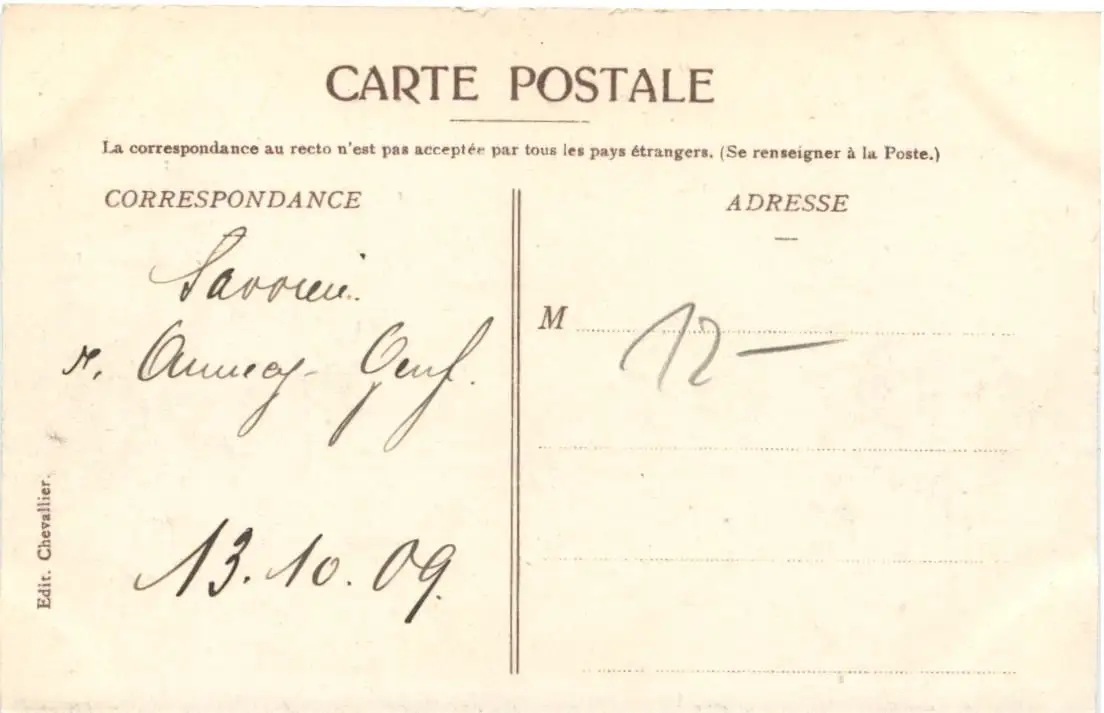 CARTE POSTALE
La correspondance au recto n'est pas acceptée par tous les pays étrangers. (Se renseigner à la Poste.)
CORRESPONDANCE
Annecy - Genf.
13.10.09.
Edit. Chevallier.
ADRESSE
M
12 —